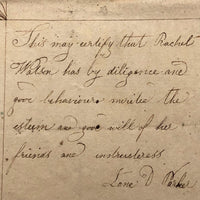 This may certify that Rachel
Wilson has by diligence and
good behaviour merited the
esteem and good will of her
friends and instructress
D Parker